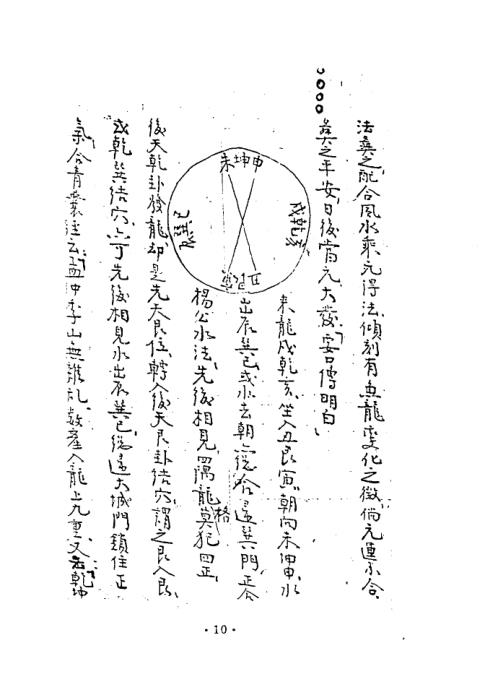 法葬之,配合風水乘元得法,傾刻有魚龍變化之徵,倘元運不合,
葬之平安,日後當元大發,安口傳明白,
未坤申
戌乾亥
丑艮寅
辰巽巳
來龍戌乾亥,坐入丑艮寅,朝向未坤申,水
出辰巽巳或水去朝合遠巽門正合
楊公水法,先後相見,四隅龍格莫犯四正,
後天乾卦發龍,却是先天艮位,轉入後天艮卦結穴,謂之艮入艮,
或乾巽結穴,亦可先後相見水出辰巽巳,總是大城門鎖住正
氣合青囊註云孟仲季山無雜亂,數產入龍上九重,又云乾坤
·10·